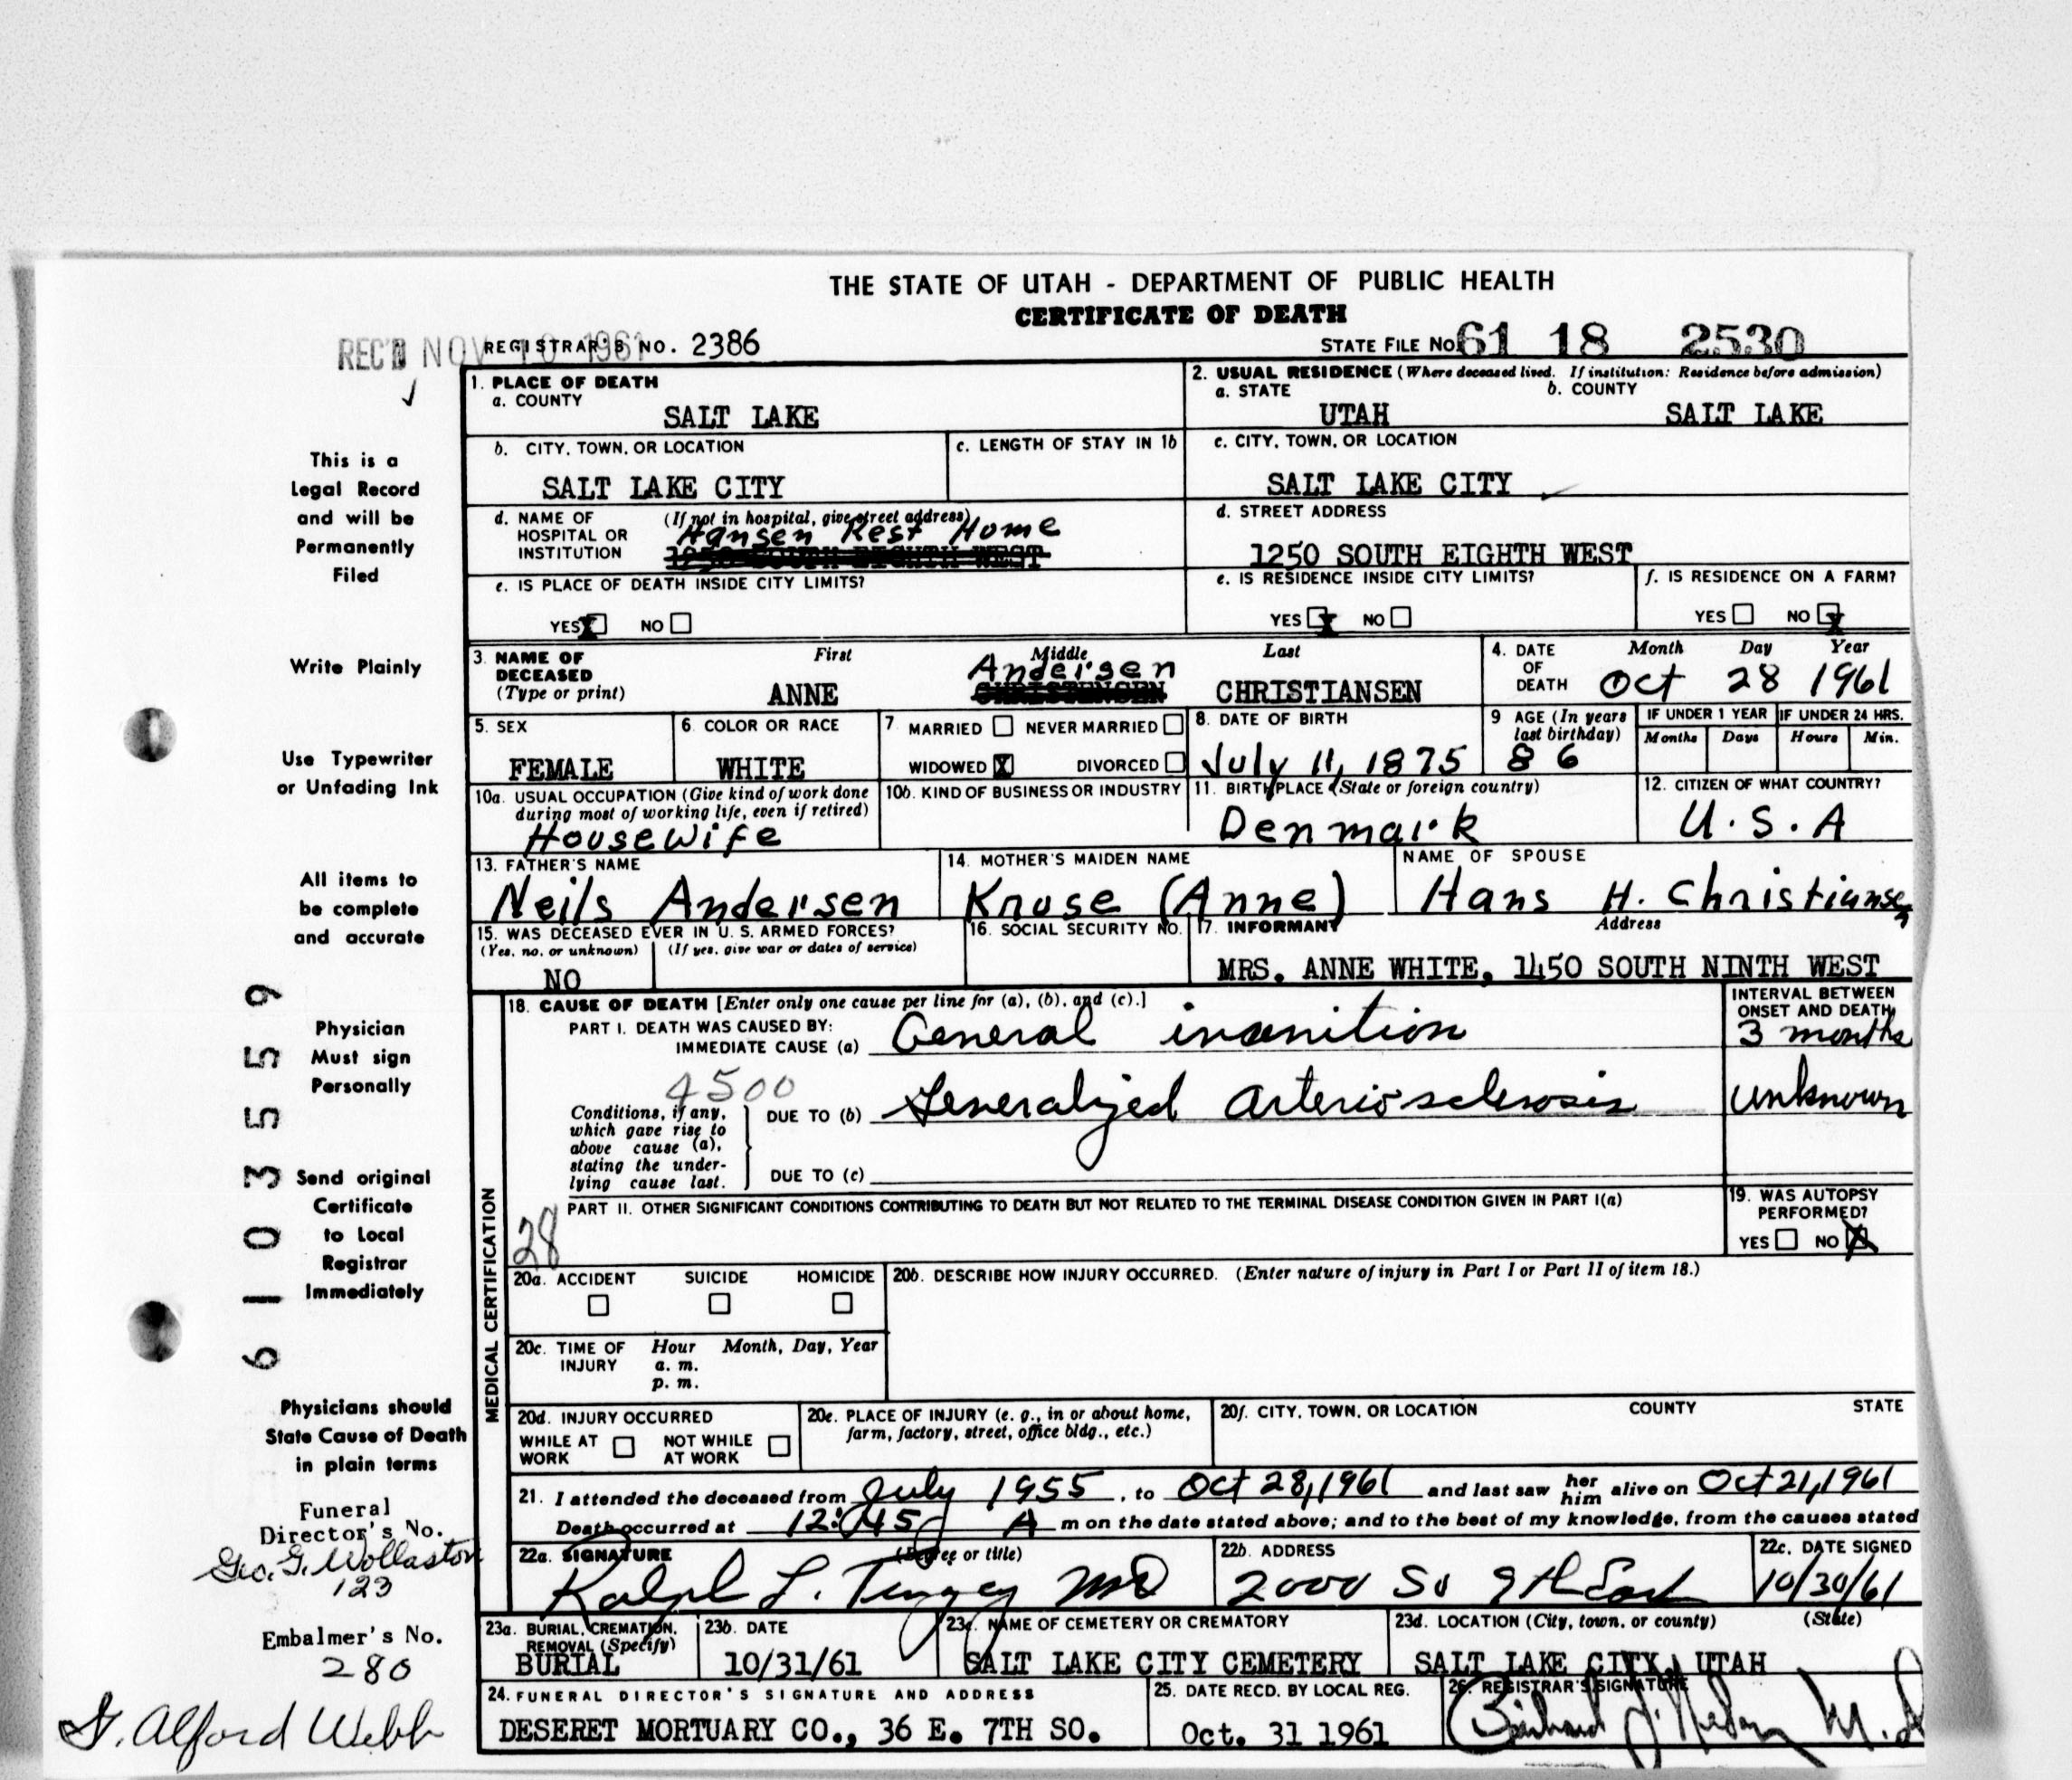 THE STATE OF UTAH - DEPARTMENT OF PUBLIC HEALTH
CERTIFICATE OF DEATH
REC'D NOV 10 1961
REGISTRAR'S NO. 2386
STATE FILE NO. 61 18 2530
1. PLACE OF DEATH
a. COUNTY
SALT LAKE
2. USUAL RESIDENCE (Where deceased lived. If institution: Residence before admission)
a. STATE b. COUNTY
UTAH SALT LAKE
b. CITY, TOWN, OR LOCATION
SALT LAKE CITY
c. LENGTH OF STAY IN 1b
c. CITY, TOWN, OR LOCATION
SALT LAKE CITY
d. NAME OF HOSPITAL OR INSTITUTION (If not in hospital, give street address)
Hansen Rest Home
1250 SOUTH EIGHTH WEST
d. STREET ADDRESS
1250 SOUTH EIGHTH WEST
e. IS PLACE OF DEATH INSIDE CITY LIMITS?
YES X NO
e. IS RESIDENCE INSIDE CITY LIMITS?
YES X NO
f. IS RESIDENCE ON A FARM?
YES NO X
3. NAME OF DECEASED (Type or print)
First Middle Last
Andersen
ANNE CHRISTENSEN CHRISTIANSEN
4. DATE OF DEATH Month Day Year
Oct 28 1961
5. SEX
FEMALE
6. COLOR OR RACE
WHITE
7. MARRIED NEVER MARRIED
WIDOWED X DIVORCED
8. DATE OF BIRTH
July 11, 1875
9 AGE (In years last birthday)
86
IF UNDER 1 YEAR IF UNDER 24 HRS.
Months Days Hours Min.
10a. USUAL OCCUPATION (Give kind of work done during most of working life, even if retired)
Housewife
10b. KIND OF BUSINESS OR INDUSTRY
11. BIRTHPLACE (State or foreign country)
Denmark
12. CITIZEN OF WHAT COUNTRY?
U.S.A
13. FATHER'S NAME
Neils Andersen
14. MOTHER'S MAIDEN NAME
Kruse (Anne)
NAME OF SPOUSE
Hans H. Christiansen
15. WAS DECEASED EVER IN U. S. ARMED FORCES?
(Yes, no, or unknown) (If yes, give war or dates of service)
NO
16. SOCIAL SECURITY NO.
17. INFORMANT Address
MRS. ANNE WHITE, 1450 SOUTH NINTH WEST
MEDICAL CERTIFICATION
18. CAUSE OF DEATH [Enter only one cause per line for (a), (b), and (c).]
PART I. DEATH WAS CAUSED BY:
IMMEDIATE CAUSE (a) General inanition
INTERVAL BETWEEN ONSET AND DEATH
3 months
4500
Conditions, if any, which gave rise to above cause (a), stating the underlying cause last.
DUE TO (b) Generalized Arteriosclerosis
unknown
DUE TO (c)
PART II. OTHER SIGNIFICANT CONDITIONS CONTRIBUTING TO DEATH BUT NOT RELATED TO THE TERMINAL DISEASE CONDITION GIVEN IN PART I(a)
28
19. WAS AUTOPSY PERFORMED?
YES NO X
20a. ACCIDENT SUICIDE HOMICIDE
20b. DESCRIBE HOW INJURY OCCURRED. (Enter nature of injury in Part I or Part II of item 18.)
20c. TIME OF INJURY Hour Month, Day, Year
a. m.
p. m.
20d. INJURY OCCURRED
WHILE AT WORK NOT WHILE AT WORK
20e. PLACE OF INJURY (e. g., in or about home, farm, factory, street, office bldg., etc.)
20f. CITY, TOWN, OR LOCATION COUNTY STATE
21. I attended the deceased from July 1955, to Oct 28, 1961 and last saw her him alive on Oct 21, 1961
Death occurred at 12:45 A m on the date stated above; and to the best of my knowledge, from the causes stated
22a. SIGNATURE (Degree or title)
Ralph L. Tingey MD
22b. ADDRESS
2000 So 9th East
22c. DATE SIGNED
10/30/61
23a. BURIAL, CREMATION, REMOVAL (Specify)
BURIAL
23b. DATE
10/31/61
23c. NAME OF CEMETERY OR CREMATORY
SALT LAKE CITY CEMETERY
23d. LOCATION (City, town, or county) (State)
SALT LAKE CITY, UTAH
24. FUNERAL DIRECTOR'S SIGNATURE AND ADDRESS
DESERET MORTUARY CO., 36 E. 7TH SO.
25. DATE RECD. BY LOCAL REG.
Oct. 31 1961
26. REGISTRAR'S SIGNATURE
M.D
This is a
Legal Record
and will be
Permanently
Filed
Write Plainly
Use Typewriter
or Unfading Ink
All items to
be complete
and accurate
Physician
Must sign
Personally
Send original
Certificate
to Local
Registrar
Immediately
Physicians should
State Cause of Death
in plain terms
6 1 0 3 5 5 9
Funeral
Director's No.
Geo. G. Wollaston
123
Embalmer's No.
280
G. Alford Webb